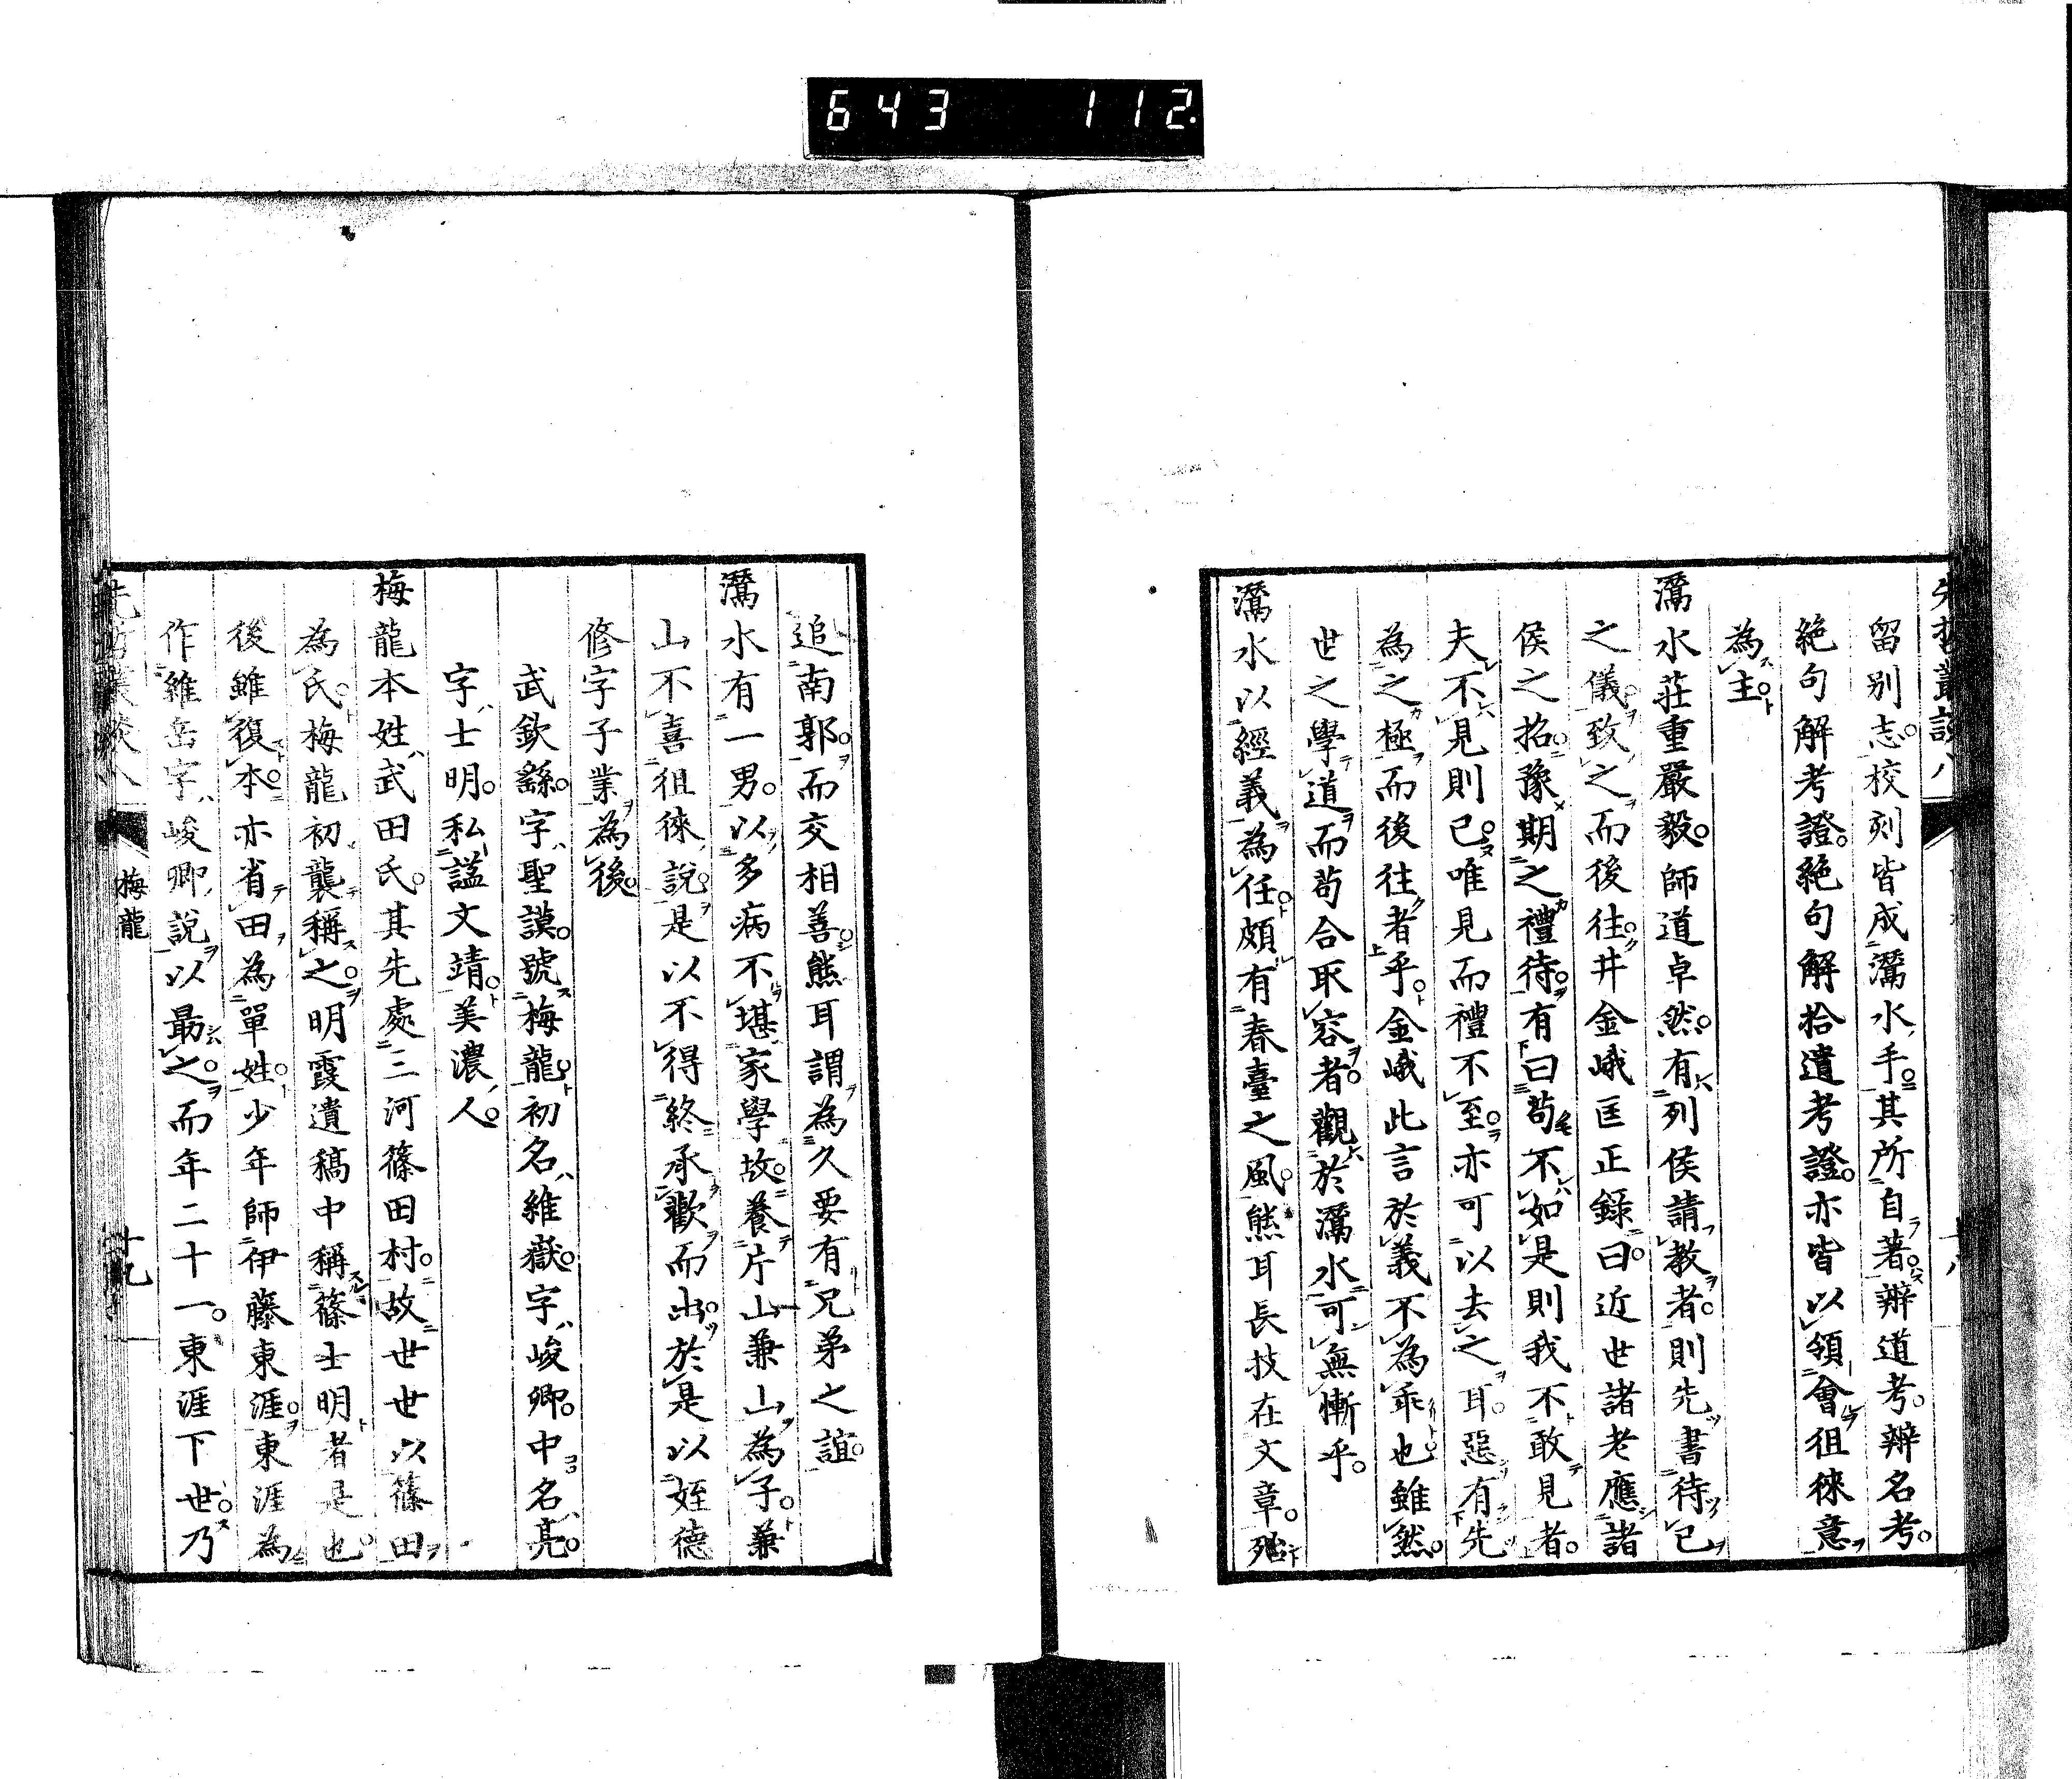 643 112.
先哲叢談八
留別志。校刻皆成灊水手。其所自著。辯道考。辯名考。
絶句解考證。絶句解拾遺考證。亦皆以領會徂徠意
為主。
灊水莊重嚴毅。師道卓然。有列侯請教者。則先書待己
之儀。致之而後往。井金峨匡正錄曰。近世諸老應諸
侯之招。豫期之禮待。有曰苟不如是則我不敢見者。
夫不見則已。唯見而禮不至。亦可以去之耳。惡有先
為之極而後往者乎。金峨此言於義不為乖也。雖然。
世之學道而苟合取容者。觀於灊水可無慚乎。
灊水以經義為任。頗有春臺之風。熊耳長技在文章。殆
追南郭。而交相善。熊耳謂為久要有兄弟之誼。
灊水有一男。以多病不堪家學。故養片山兼山為子。兼
山不喜徂徠說。是以不得終承歡而出。於是以姪德
修字子業為後。
武欽繇。字聖謨。號梅龍。初名維嶽。字峻卿。中名亮。
字士明。私謚文靖。美濃人。
梅龍本姓武田氏。其先處三河篠田村。故世世以篠田
為氏。梅龍初襲稱之。明霞遺稿中稱篠士明者是也。
後雖復本。亦省田為單姓。少年師伊藤東涯。東涯為
作維岳字峻卿說。以最之。而年二十一。東涯下世。乃
先哲叢談八 梅龍 十九